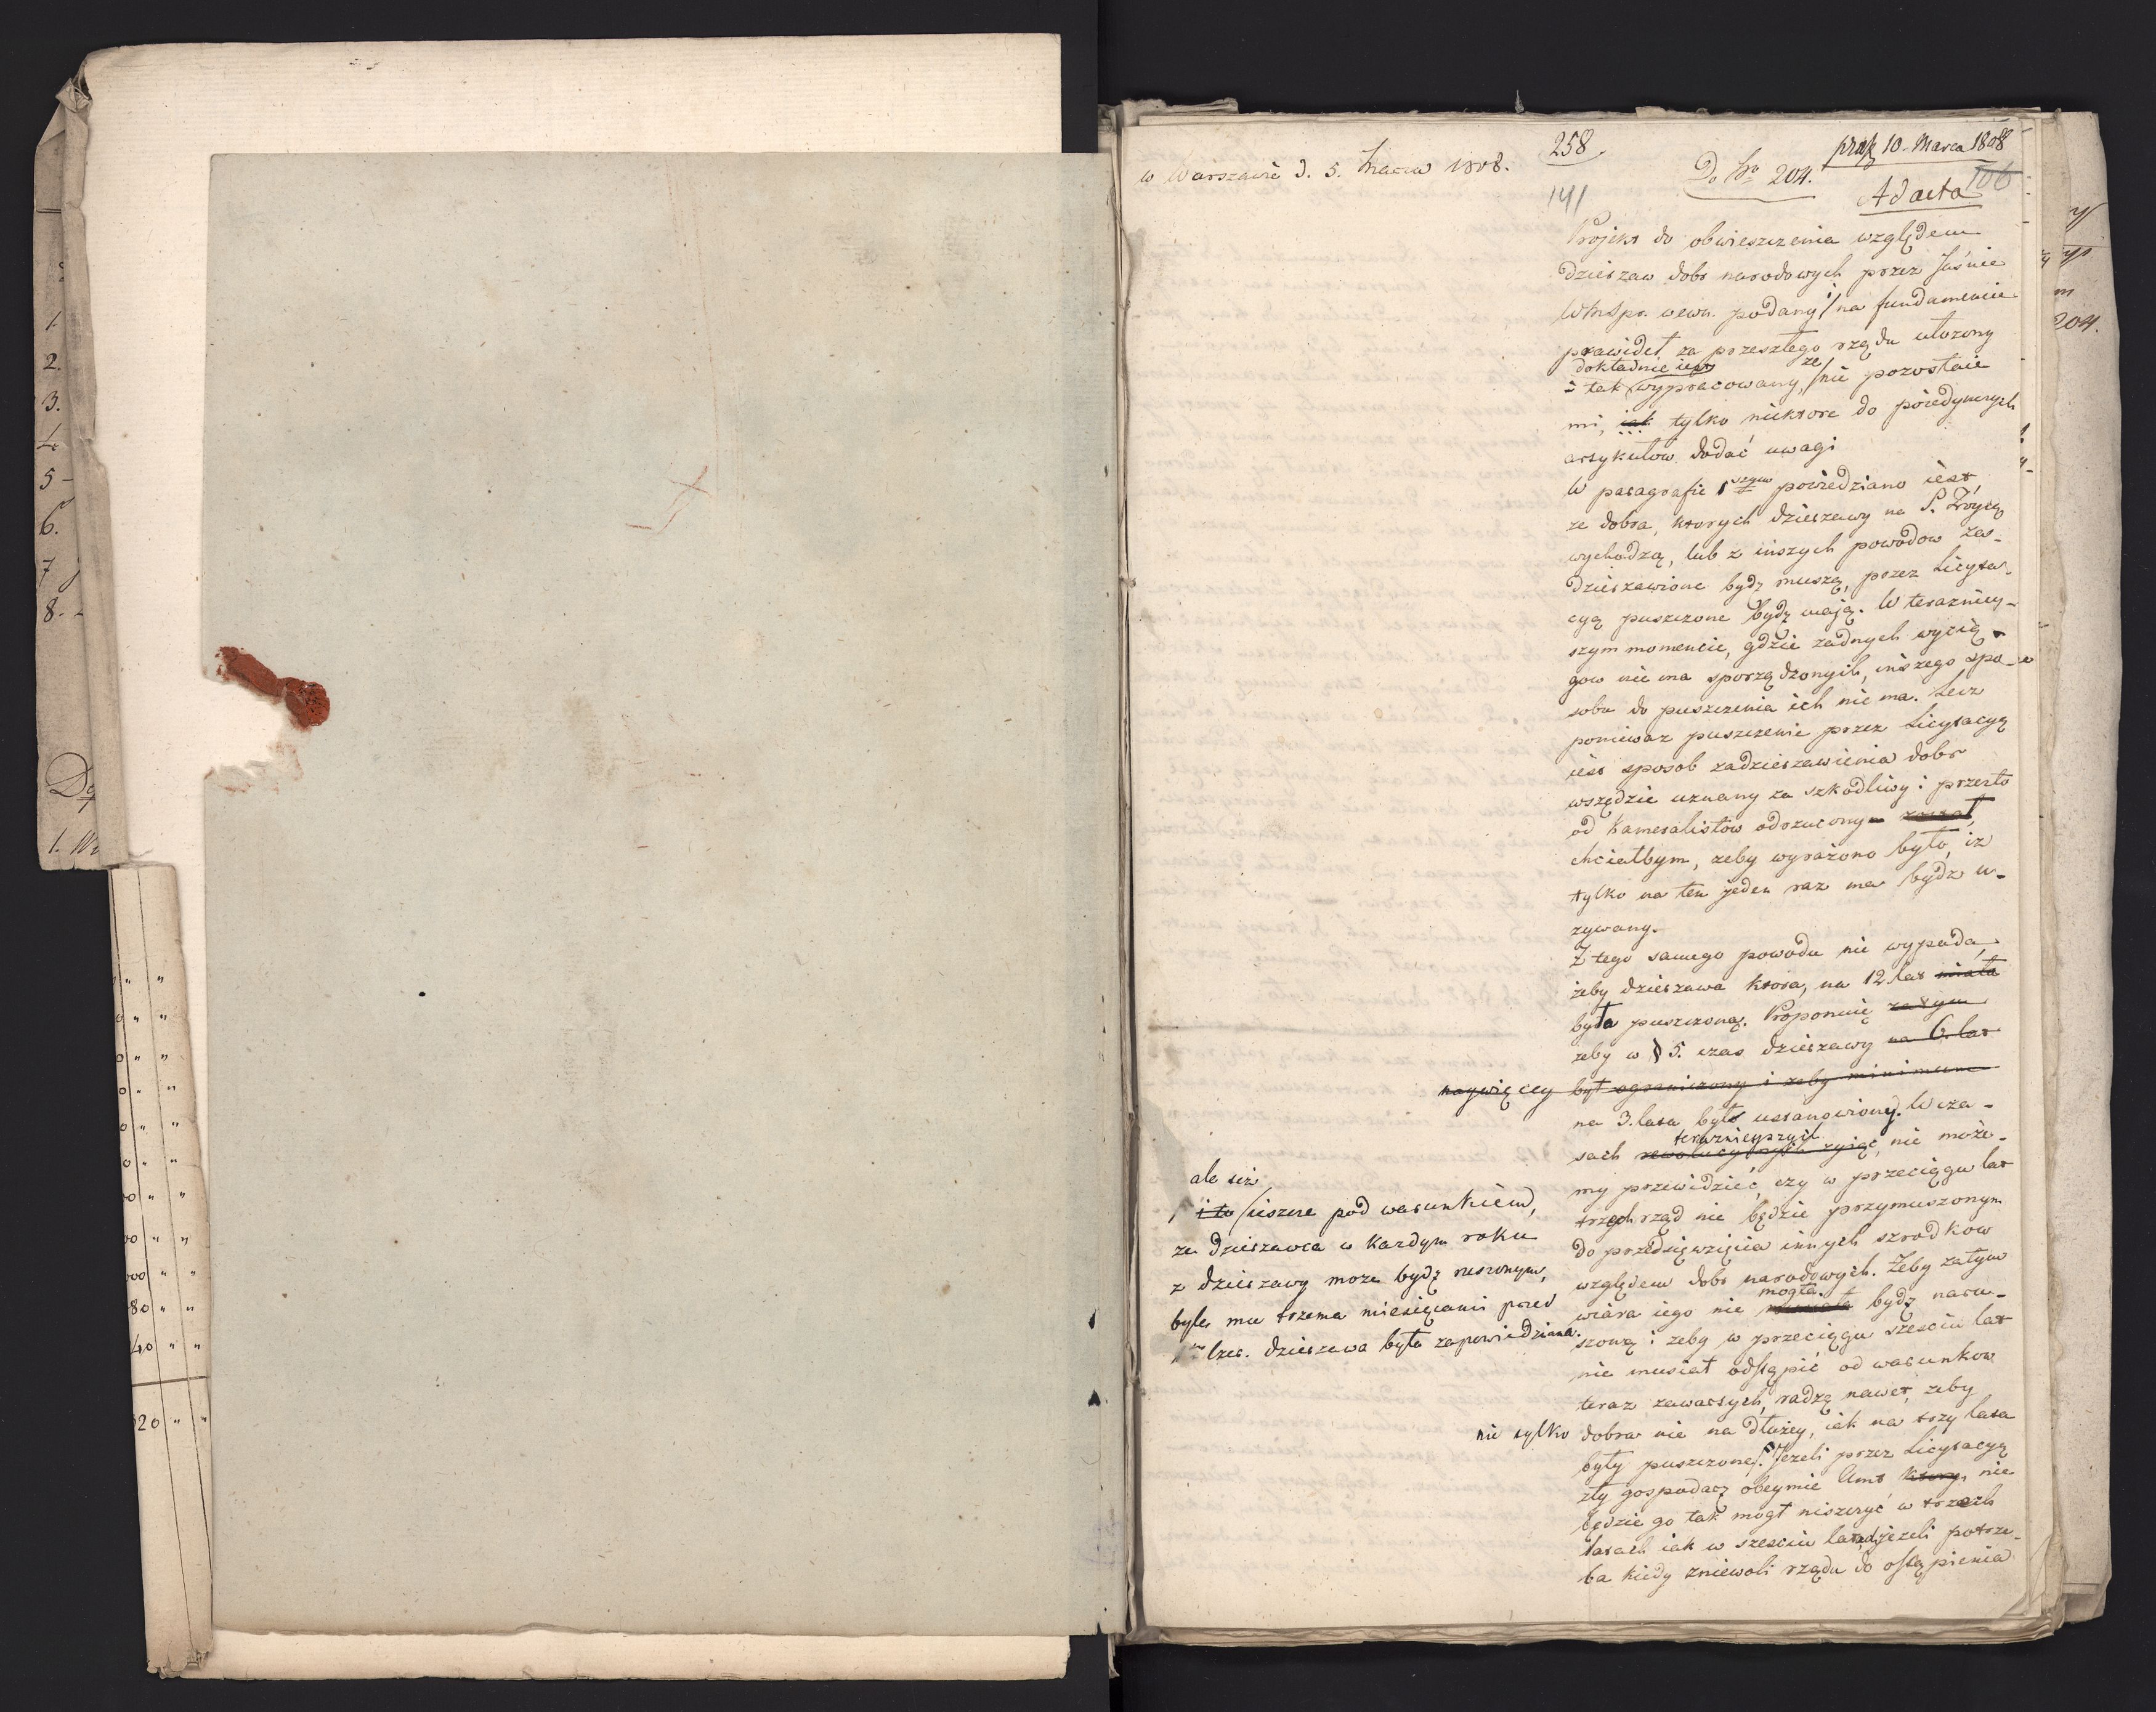 1.
2.
3.
4.
5 -
6.
7
8. -
1.
80 " "
40 " "
20 " "
w Warszawie d. 5. Marca 1808.
258.
praes 10. Marca 1808
Do Nro 204.
141
Ad acta
106
Projekt do obwieszczenia względem
dzierzaw dobr narodowych przez Jaśnie
WMSpr. wewn. podany i na fundamencie
prawideł za przeszłego rządu ułozony
dokładnie iest
tak wypracowany, ze nie pozostaie
mi, iak tylko niektore do poiedynczych
artykułow dodać uwagi
W paragrafie 1szym powiedziano iest,
ze dobra, ktorych dzierzawy na S. Troycę
wychodzą, lub z inszych powodow zas-
dzierzawione bydz muszą, przez Licyta-
cyą puszczone bydz maią. W terazniey-
szym momencie, gdzie zadnych wycią-
gow nie ma sporządzonych, inszego spo-
sobu do puszczenia ich nie ma. Lecz
poniewaz puszczenie przez Licytacyą
iest sposob zadzierzawienia dobr
wszędzie uznany za szkodliwy i przezto
od Kameralistow odrzucony
chciałbym, zeby wyrażono było, iz
tylko na ten jeden raz ma bydz u-
zywany.
Z tego samego powodu nie wypada,
żeby dzierzawa ktora, na 12 lat miała
była puszczoną. Proponuię zatym
zeby w § 5. czas dzierzawy na 6. lat
naywięcey był ograniczony i zeby minimum
na 3. lata było ustanowiony. W cza-
teraznieyszych
sach rewolucyinych zyiąc, nie może-
my przewidzieć, czy w przeciągu lat
trzech rząd nie będzie przymuszonym
do przedsięwzięcia innych szrodkow
względem dobr narodowych. Żeby zatym
mogła
wiara iego nie bydz naru-
szoną i zeby w przeciągu sześciu lat
nie musiał odstąpić od warunkow
teraz zawartych, radzę nawet, zeby
nie tylko dobra nie na dłużey, iak na trzy lata
były puszczone. Jezeli przez Licytacyą
zły gospodarz obeymie Amt ktory, nie
będzie go tak mogł niszczyć w trzech
latach iak w sześciu latach jezeli potrze-
ba kiedy zniewoli rządu do ostąpienia
ale też
i to ieszcze pod warunkiem,
ze dzierzawca w kazdym roku
z dzierzawy moze bydz ruszonym,
byle mu trzema miesiącami przed
Czer. dzierzawa była zapowiedziana.
204.